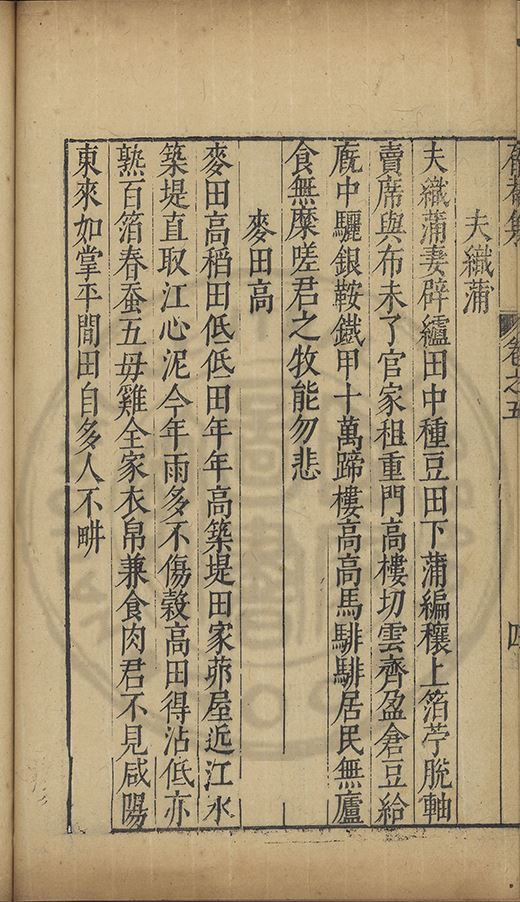 卷之五
夫織蒲
夫織蒲妻辟纑田中種豆田下蒲編穰上箔苧脫軸
賣席與布未了官家租重門高樓切雲齊盈倉豆給
廐中驪銀鞍鐵甲十萬蹄樓高高馬騑騑居民無廬
食無糜嗟君之牧能勿悲
麥田高
麥田高稻田低低田年年高築堤田家茆屋近江水
築堤直取江心泥今年雨多不傷穀高田得沾低亦
熟百箔春蚕五母雞全家衣帛兼食肉君不見咸陽
東來如掌平閒田自多人不畊